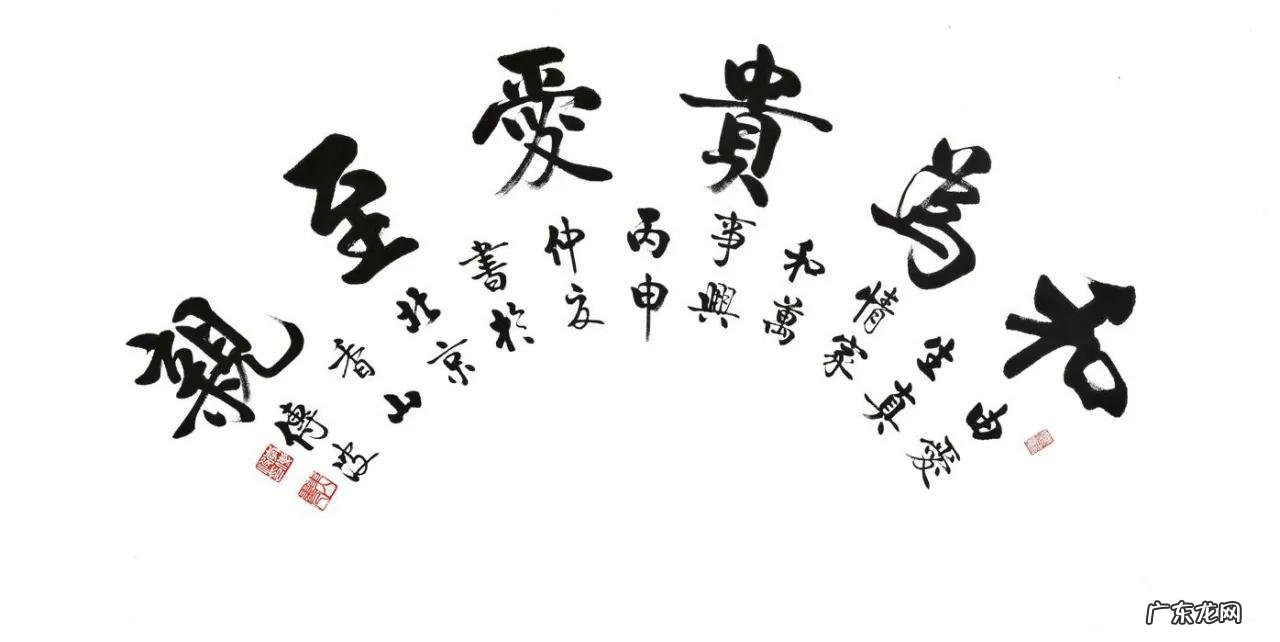 和為貴愛至親
由愛
生真
情家
和萬
事興
丙申
仲夏
書於
北京
香山
傅波
广东龙网